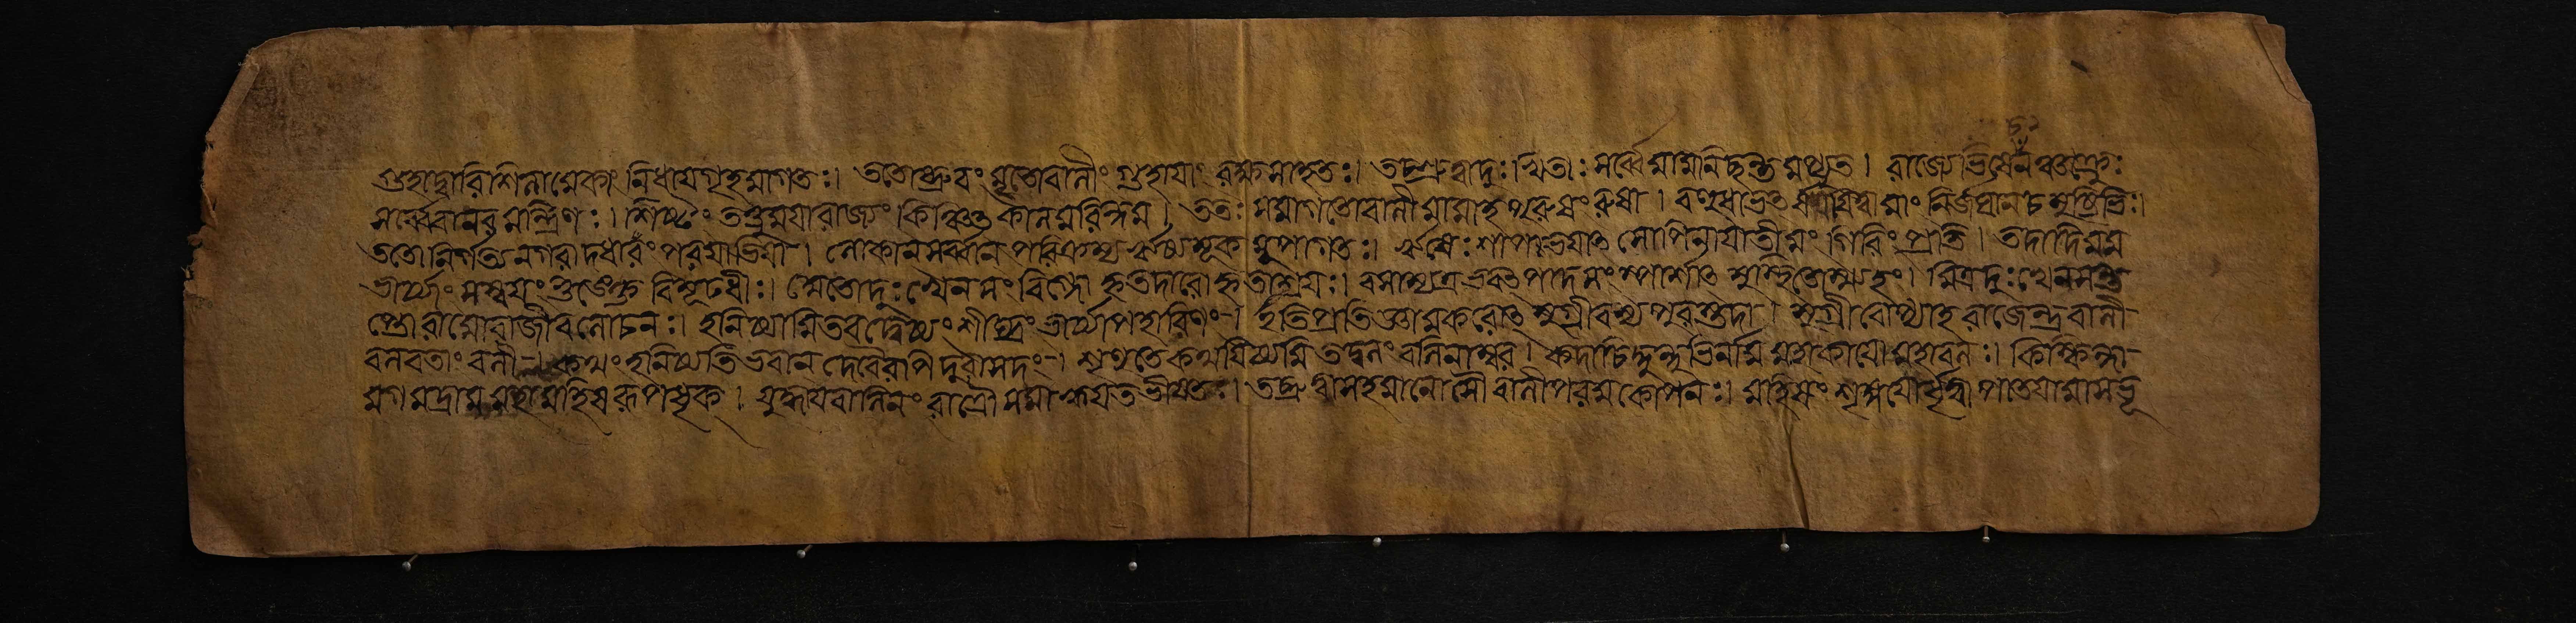 গুহাদ্বারি শিলামেকাং নিধায গৃহমাগতঃ। ততোব্রুবং মৃতোবালীং গুহাযাং রক্ষসাহতঃ। তচ্ছ্রুত্বাদুঃখিতাঃ সর্ব্বেমামনিচ্ছন্তমপ্যুত। রাজ্যেভিষেচনঞ্চক্রুঃ
সর্ব্বেবানরমন্ত্রিণঃ। শিষ্টং তত্তুমযারাজ্যং কিঞ্চিত্ত কালমরিন্দম। ততঃ সমাগতোবালী মামাহপরুষং রুষা। বহুধাভর্ৎসযিত্বামাং নির্জঘানচমুষ্টিভিঃ।
ততোনির্গত্যনগরাদধাবং পরযাভিযা। লোকানসর্ব্বানপরিক্রম্য ঋষ্যমূকমুপাগতঃ। ঋষেঃ শাপাদ্ভযাৎ সোপিনাযাতীমং গিরিং প্রতি। তদাদিমম
ভার্য্যাং সস্বযং ভুঙেক্ত বিমূঢধীঃ। অতোদুঃখেনসংবিগ্নো হৃতদারোহৃতাশ্রযঃ। বসাম্যত্র ভবৎপাদসংস্পর্শাৎ সুখিতোস্ম্যহং। মিত্রদুঃখেনসন্ত
প্তো রামোরাজীবলোচনঃ। হনিষ্যামিতবদ্বেষ্যং শীঘ্রং ভার্য্যাপহারিণং। ইতিপ্রতিজ্ঞামকরোৎ সুগ্রীবস্যপুরস্তদা। সুগ্রীবোপ্যাহ রাজেন্দ্রবালী
বলবতাং বলী। কথং হনিষ্যতি ভবান দেবৈরাপিদুরাসদং। শৃণুতেকথযিষ্যামি তদ্বলং বলিনাম্বর। কদাচিদ্দুন্দুভির্নাম মহাকাযোমহাবলঃ। কিষ্কিন্ধা
মগমদ্রাম মহামহিষরূপধৃক্। যুদ্ধাযবালিনং রাত্রৌ সমাহ্বযতভীষণঃ। তচ্ছ্রুত্বাসহমানোসৌ বালীপরমকোপনঃ। মহিষং শৃঙ্গযোর্ধৃত্বা পাতযামাসভূ